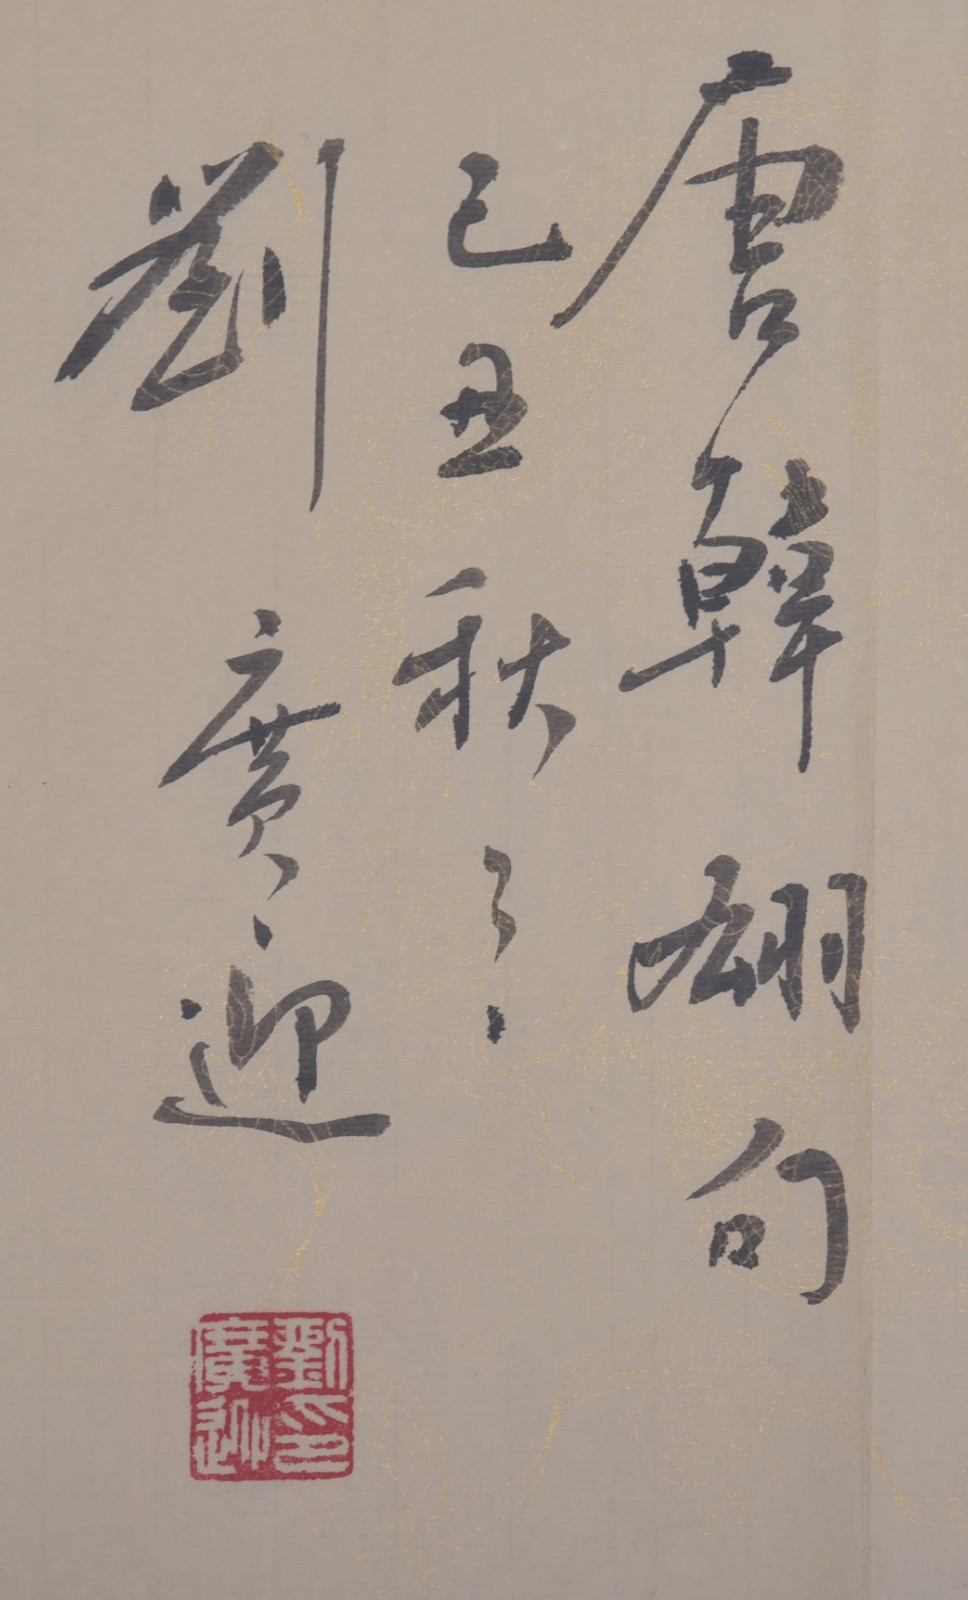 唐韓翃句
己丑秋日
劉廣迎
劉印廣迎